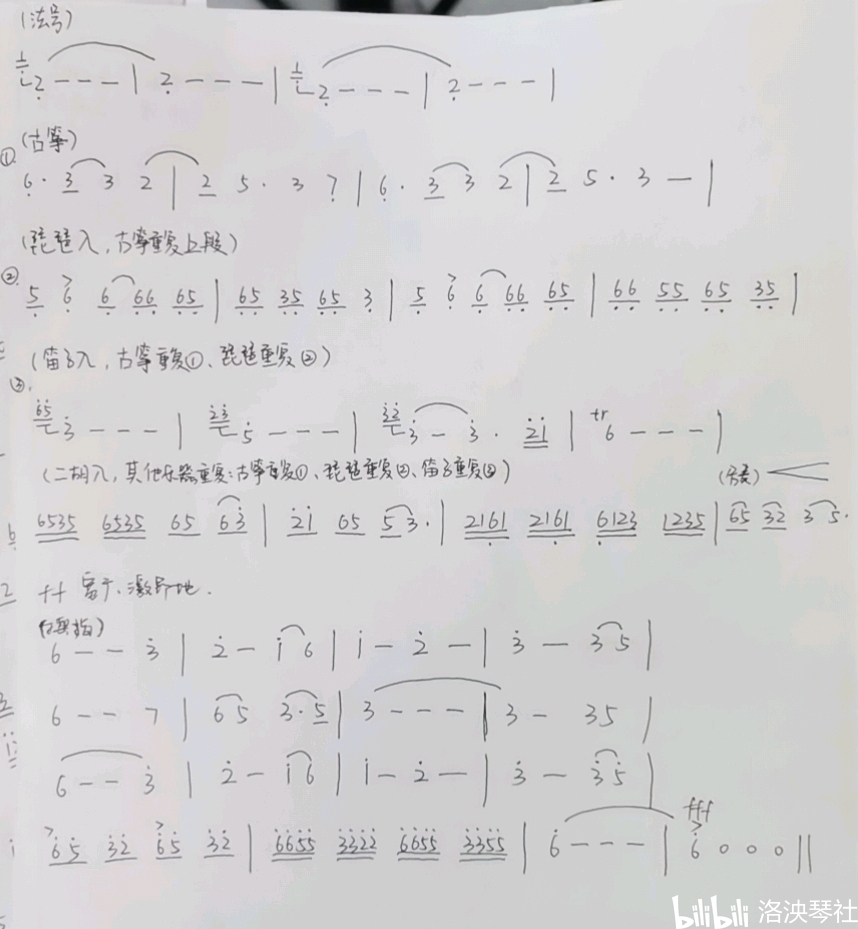 (法号)
1 2 - - - | 2 - - - | 1 2 - - - | 2 - - - |
(古筝)
① 6· 3 3 2 | 2 5· 3 7 | 6· 3 3 2 | 2 5· 3 — |
(琵琶入,古筝重复上段)
②. 5 6 6 66 65 | 65 35 65 3 | 5 6 6 66 65 | 66 55 65 35 |
(笛子入,古筝重复①、琵琶重复②)
③.
65 3 - - - | 23 5 - - - | 32 3 - 3· 21 | tr 6 - - - |
(二胡入,其他乐器重复:古筝重复①、琵琶重复②、笛子重复③)
6535 6535 65 63 | 21 65 53· | 2161 2161 6123 1235 | 65 32 3 5·
ff 富于、激昂地.
6 - - 3 | 2 - i 6 | i - 2 - | 3 - 3 5 |
6 - - 7 | 6 5 3·5 | 3 - - - | 3 - 35 |
6 - - 3 | 2 - i 6 | i - 2 - | 3 - 3 5 |
fff
65 32 65 32 | 6655 3322 6655 3355 | 6 - - - | 6 0 0 0 ||
bilibili 洛泱琴社